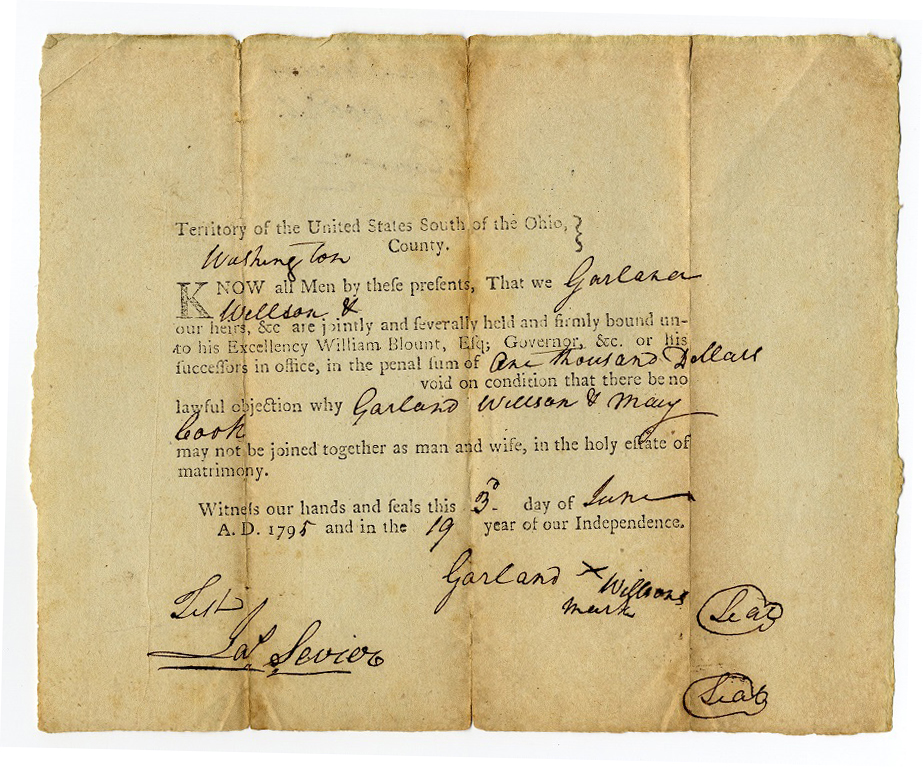 Territory of the United States South of the Ohio, }
Washington County.
KNOW all Men by theſe preſents, That we Garland
Willson &
our heirs, &c are jointly and ſeverally held and firmly bound un-
to his Excellency William Blount, Eſq; Governor, &c. or his
ſucceſſors in office, in the penal ſum of One thousand Dollars
void on condition that there be no
lawful objection why Garland Willson & Mary
Cook
may not be joined together as man and wife, in the holy eſtate of
matrimony.
Witneſs our hands and ſeals this 3d day of June
A. D. 1795 and in the 19 year of our Independence.
Garland x Willsons
mark
Seal
Test
Jas. Sevier
Seal